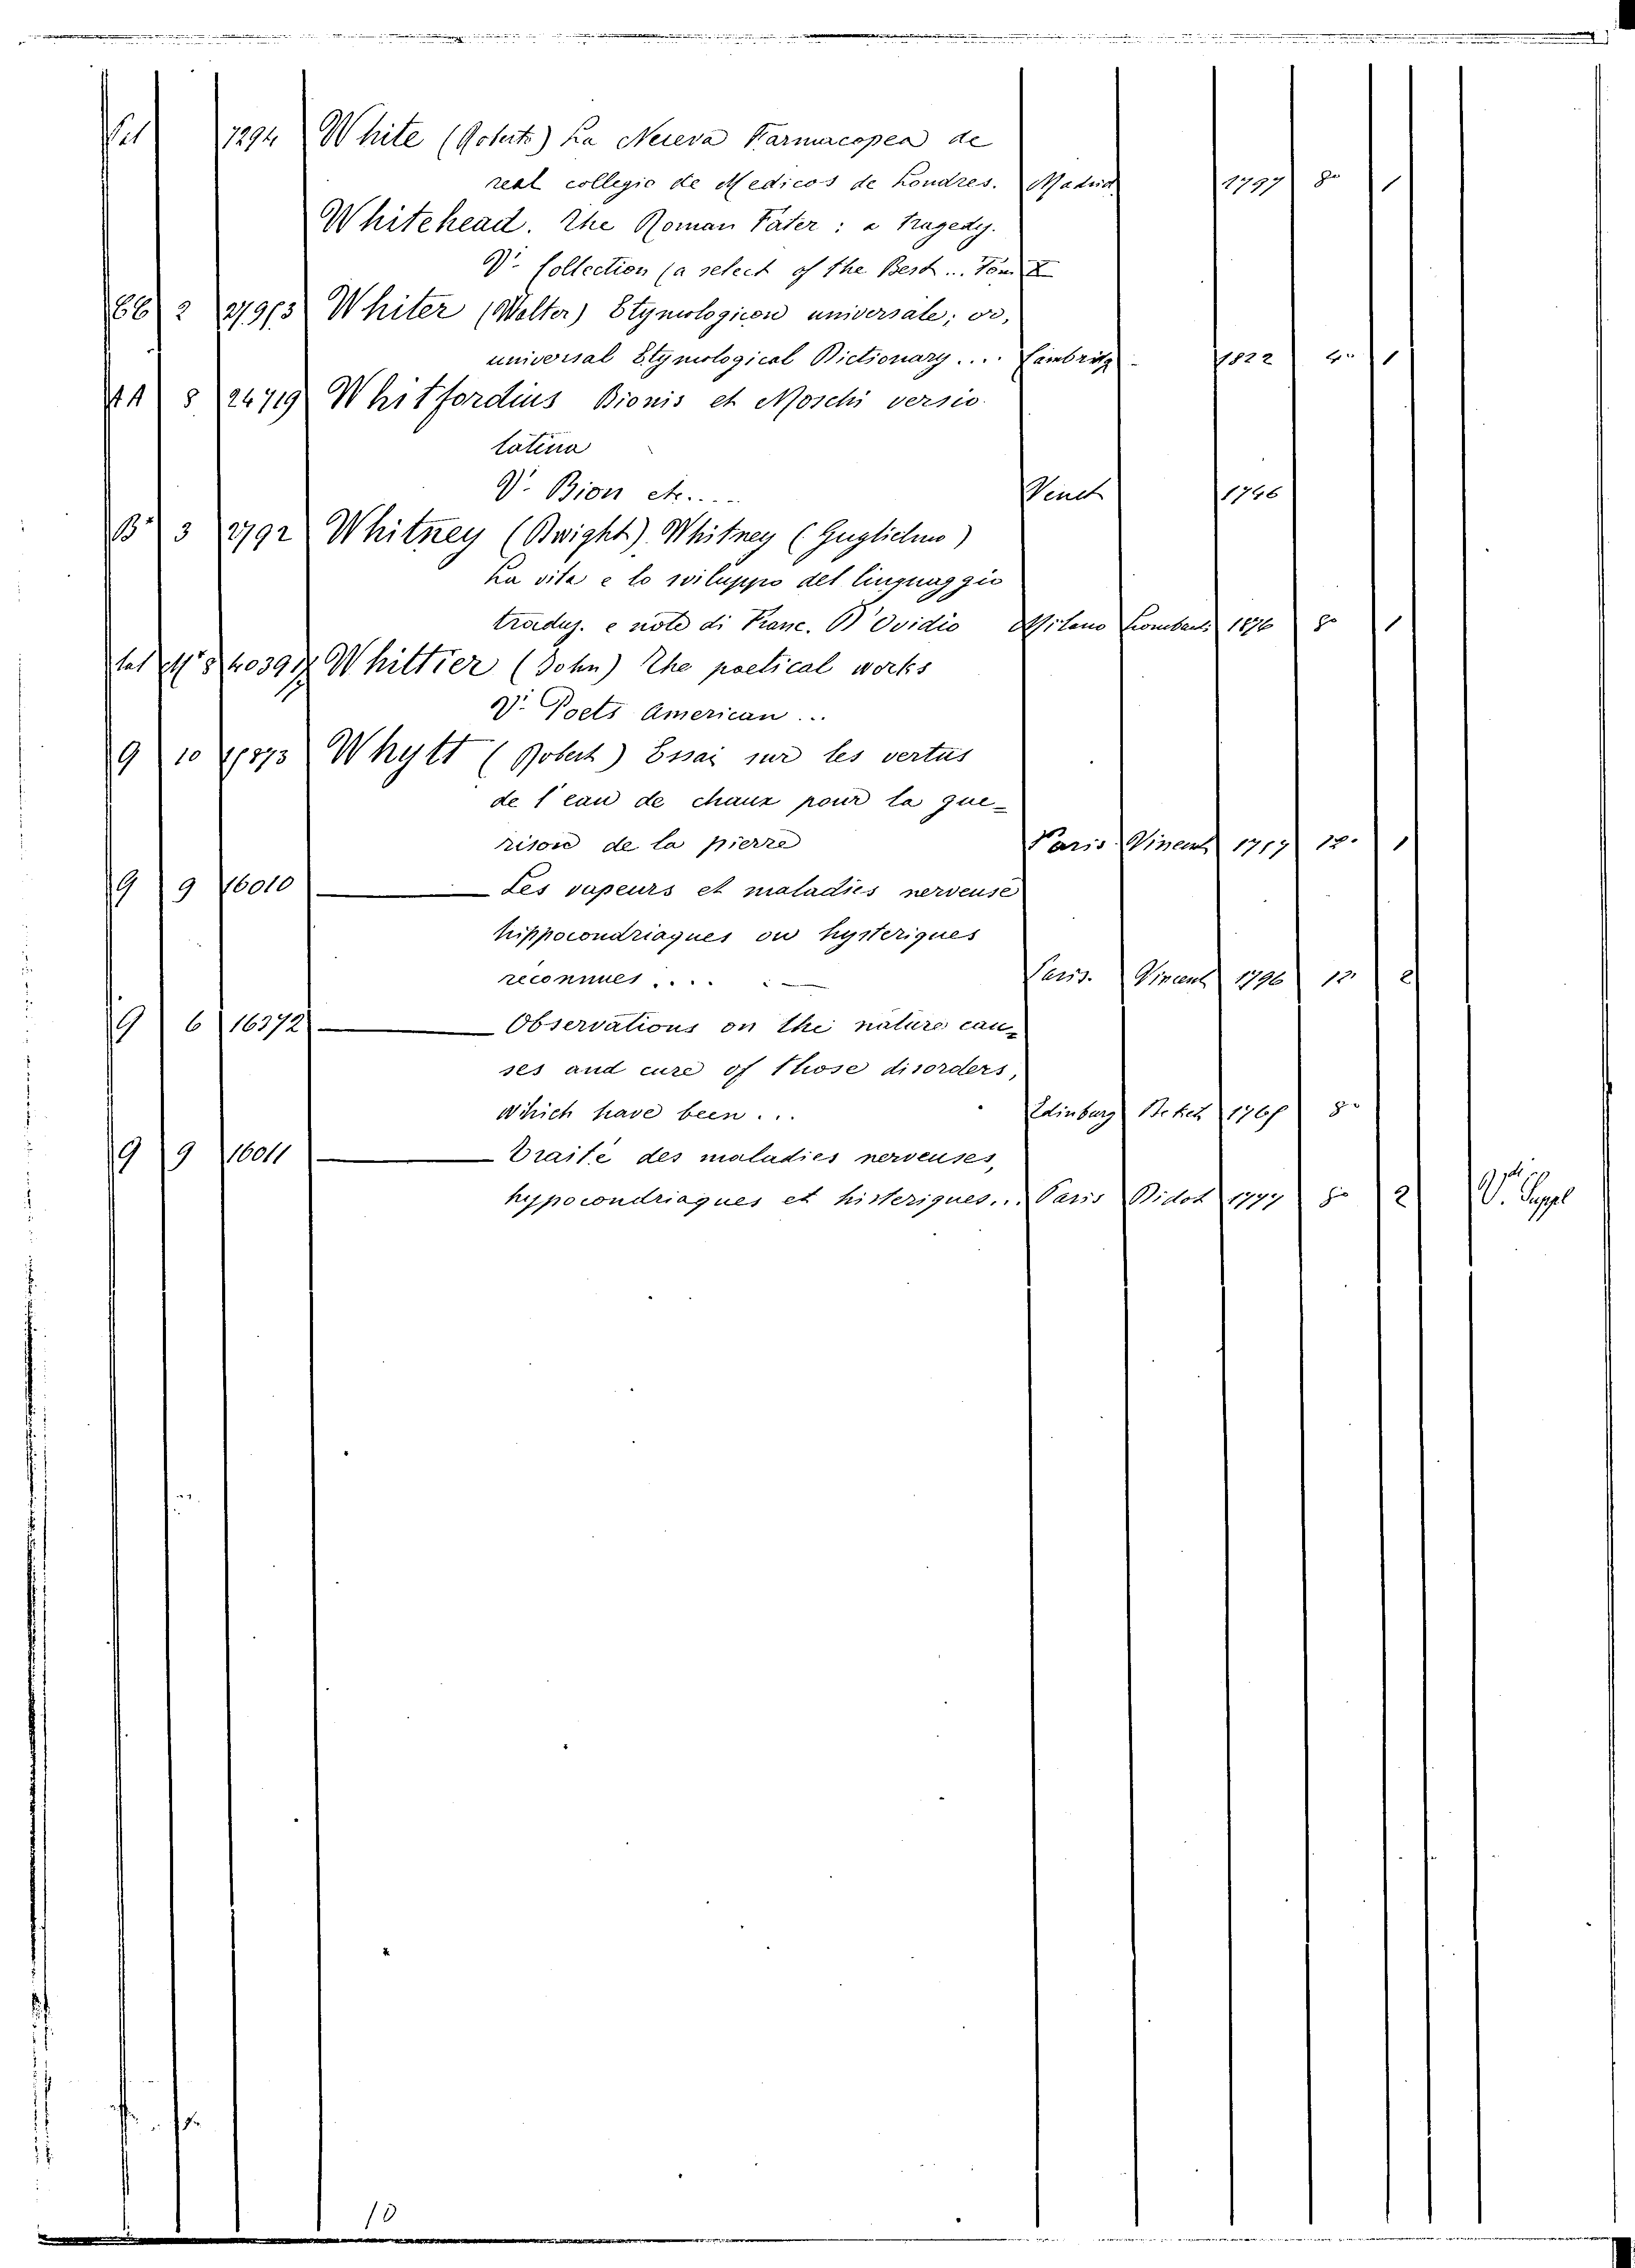 1294 White (Robert) La Nueva Farmacopea de
real collegio de Medicos de Londres. Madrid 1797 8° 1
Whitehead. The Roman Fater: a tragedy.
V. Collection (a select of the Best... Tom X
2 Whiter (Walter) Etymologicon universale; or,
universal Etymological Dictionary.... Cambridg 1822 4° 1
AA 8 24719 Whitfordius Bionis et Moschi versio
latina
V. Bion etc..... Venet 1746
3 2792 Whitney (Dwight) Whitney (Guglielmo)
La vita e lo sviluppo del linguaggio
traduz. e note di Franc. D'Ovidio Milano 1876 8° 1
Whittier (John) The poetical works
V. Poets American...
9 10 Whytt (Robert) Essai sur les vertus
de l'eau de chaux pour la gue-
rison de la pierre Paris Vincent 12° 1
9 9 16010 — Les vapeurs et maladies nerveuse
hippocondriaques ou hysteriques
reconnues.... Paris. Vincent 12° 2
9 6 16372 — Observations on the nature cau-
ses and cure of those disorders,
which have been... Edinburg Beket 8°
9 9 16011 — Traité des maladies nerveuses,
hypocondriaques et histeriques... Paris Didot 1777 8° 2 V. Suppl
10